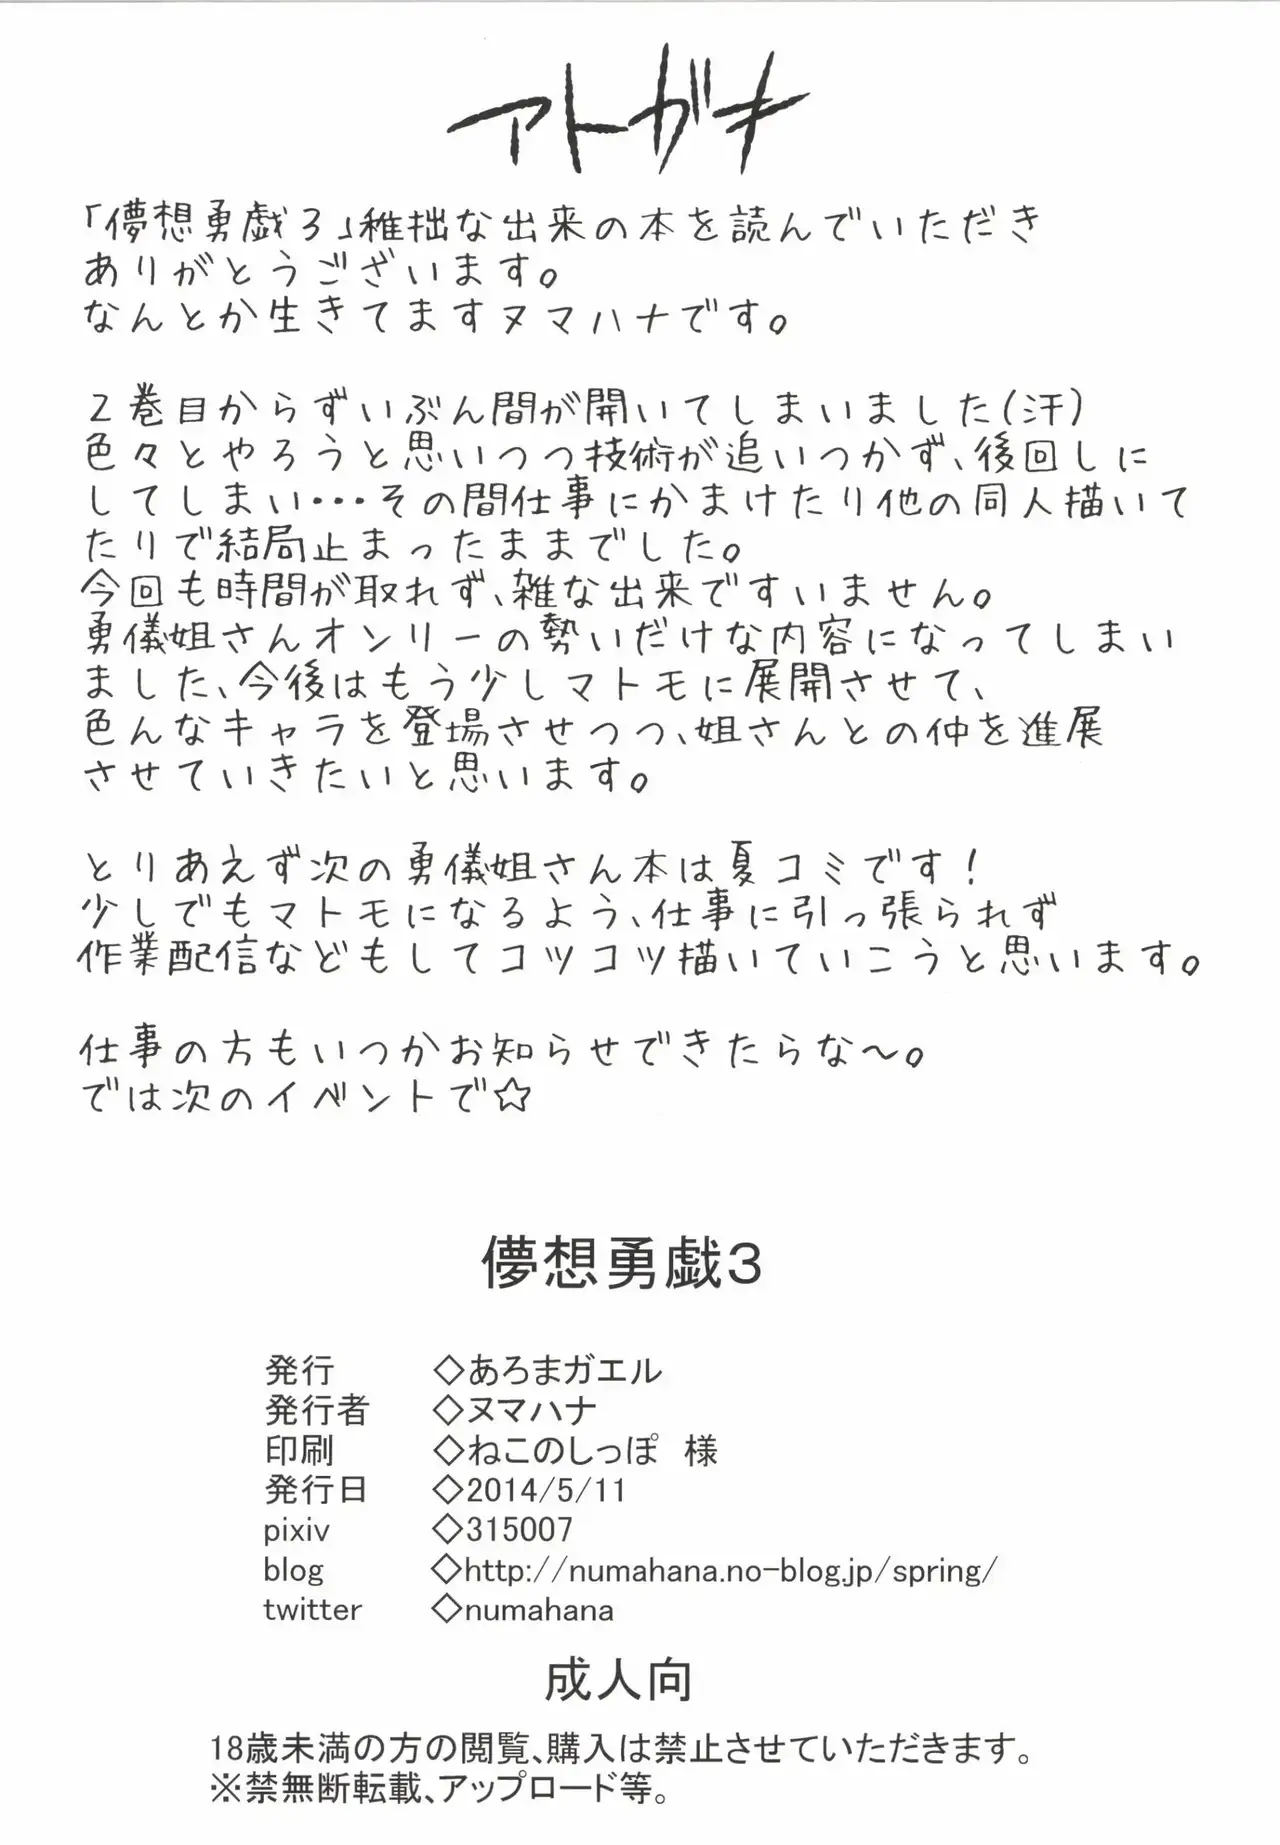 アトガキ
「儚想勇戯3」稚拙な出来の本を読んでいただき
ありがとうございます。
なんとか生きてますヌマハナです。
2巻目からずいぶん間が開いてしまいました(汗)
色々とやろうと思いつつ技術が追いつかず、後回しに
してしまい・・・その間仕事にかまけたり他の同人描いて
たりで結局止まったままでした。
今回も時間が取れず、雑な出来ですいません。
勇儀姐さんオンリーの勢いだけな内容になってしまい
ました、今後はもう少しマトモに展開させて、
色んなキャラを登場させつつ、姐さんとの仲を進展
させていきたいと思います。
とりあえず次の勇儀姐さん本は夏コミです!
少しでもマトモになるよう、仕事に引っ張られず
作業配信などもしてコツコツ描いていこうと思います。
仕事の方もいつかお知らせできたらな〜。
では次のイベントで☆
儚想勇戯3
発行 ◇あろまガエル
発行者 ◇ヌマハナ
印刷 ◇ねこのしっぽ 様
発行日 ◇2014/5/11
pixiv ◇315007
blog ◇http://numahana.no-blog.jp/spring/
twitter ◇numahana
成人向
18歳未満の方の閲覧、購入は禁止させていただきます。
※禁無断転載、アップロード等。